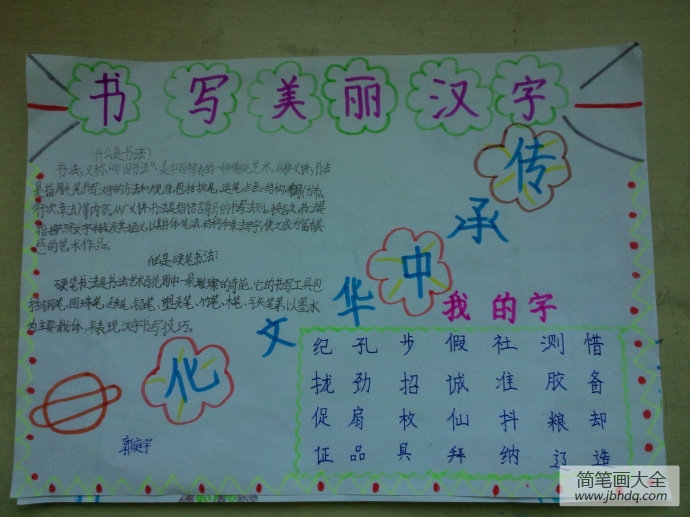 书写美丽汉字
什么是书法？
书法，又称“中国书法”，是中国特有的一种传统艺术。从狭义讲，书法
是指用毛笔书写汉字的方法和规律。包括执笔、运笔、点画、结构、布局(分布、
行次、章法)等内容。从广义讲，书法是指语言符号的书写法则。换言之，书法是
指按照文字特点及其涵义，以其书体笔法、结构和章法写字，使之成为富有美
感的艺术作品。
什么是硬笔书法？
硬笔书法是书法艺术百花园中一朵璀璨的奇葩，它的书写工具包
括钢笔、圆珠笔、铅笔、塑头笔、竹笔、木笔、以墨水
为主要载体，来表现汉字书写技巧。
传承中华文化
我的字
纪 孔 步 假 社 测 惜
拢 劲 招 诚 准 胶 备
促 扇 枚 仙 抖 粮 却
证 品 具 拜 纳 辽 造
郭庭宇
简笔画大全
www.jbhdq.com